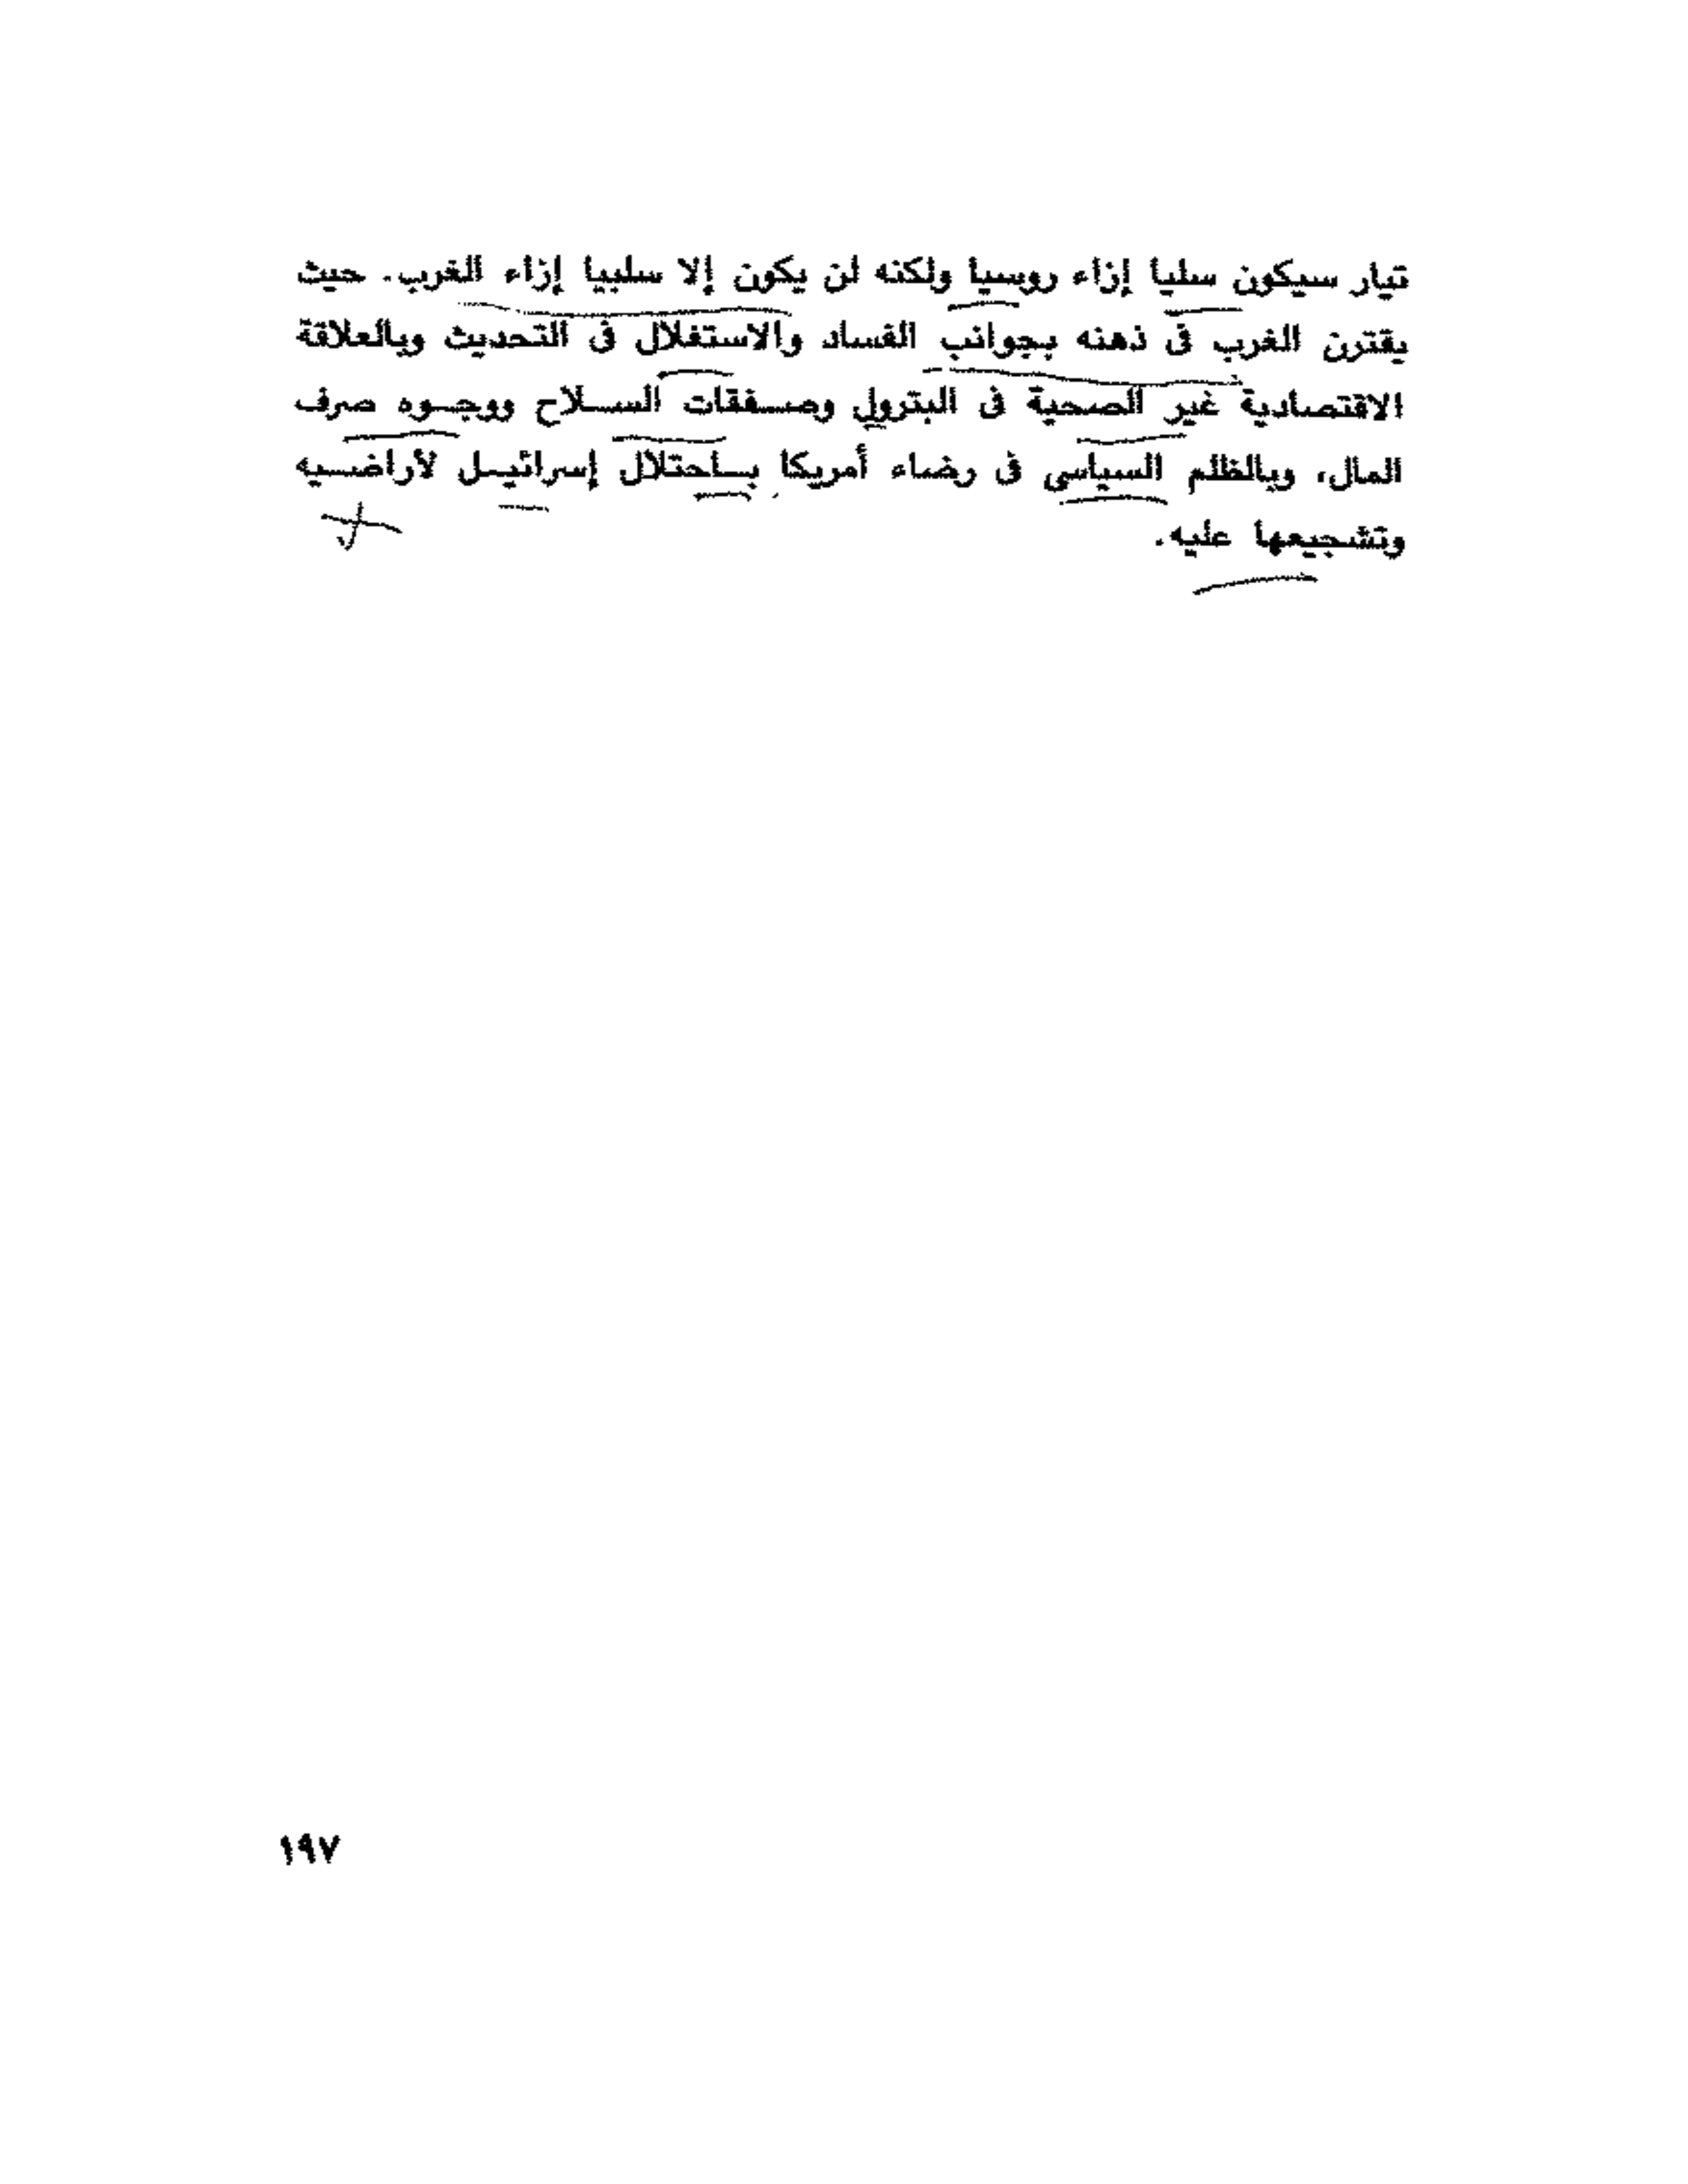 تيار سيكون سليا إزاء روسيا ولكنه لن يكون إلا سلبيا إزاء الغرب. حيث
يقترن الغرب فى ذهنه بجوانب الفساد والاستغلال فى التحديث وبالعلاقة
الاقتصادية غير الصحية فى البترول وصفقات السلاح ووجوه صرف
المال، وبالظلم السياسى فى رضاء أمريكا باحتلال إسرائيل لأراضيه
وتشجيعها عليه.
١٩٧